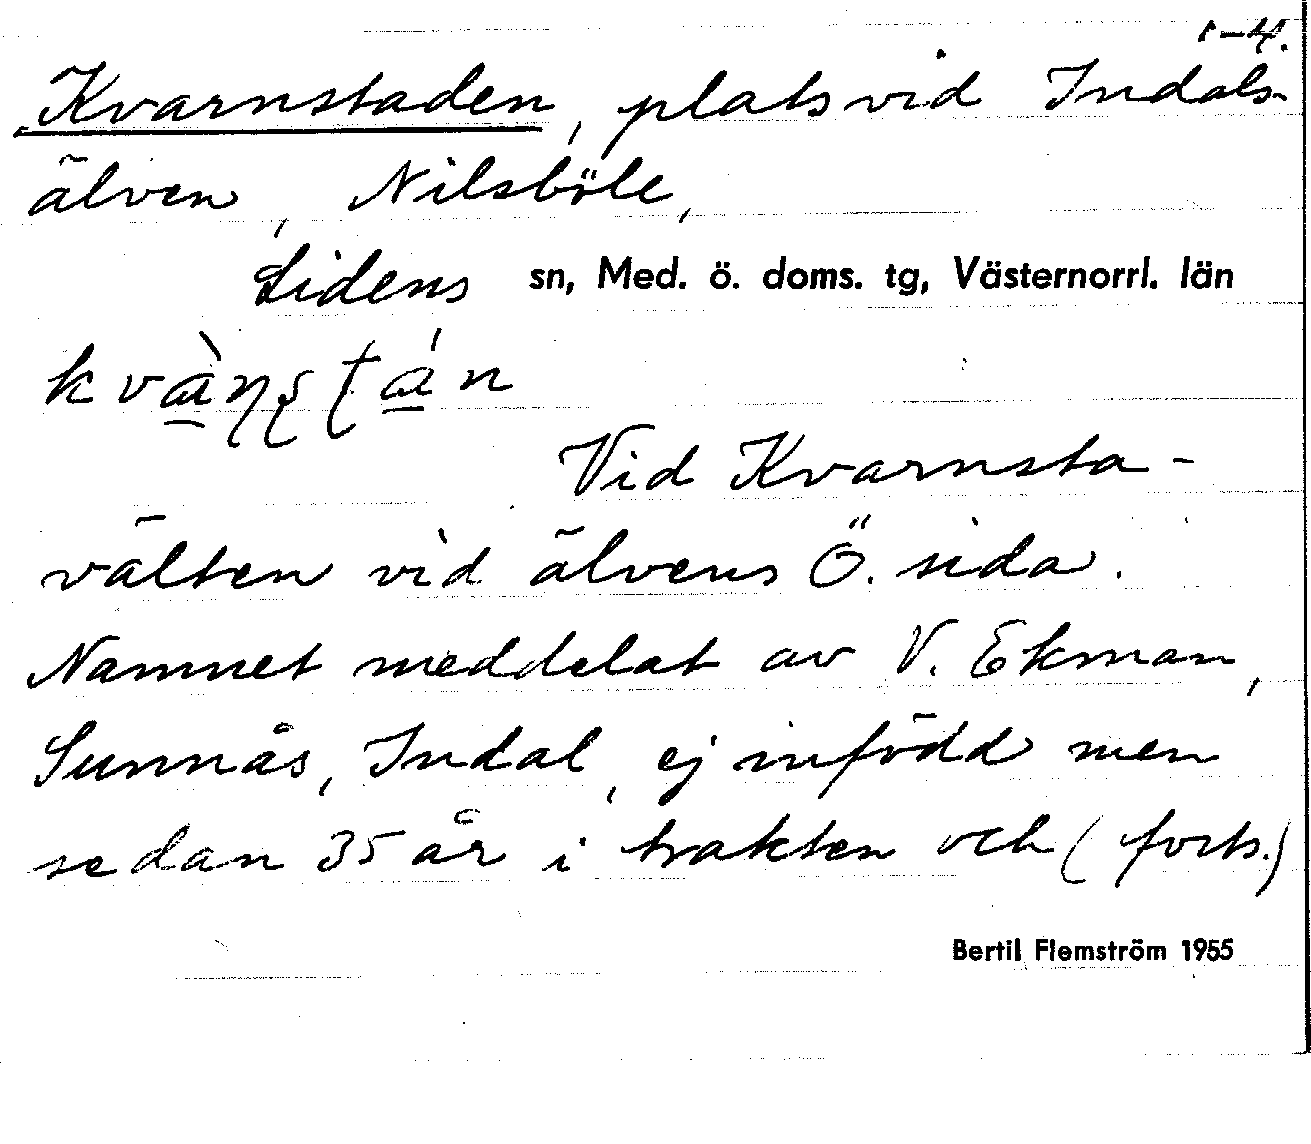 1-4.
Kvarnstaden, plats vid Indals-
älven, Nilsböle,
Lidens sn, Med. ö. doms. tg, Västernorrl. län
Vid Kvarnsta-
välten vid älvens Ö. sida.
Namnet meddelat av V. Ekman,
Sunnås, Indal, ej infödd men
sedan 35 år i trakten och (forts.)
Bertil Flemström 1955